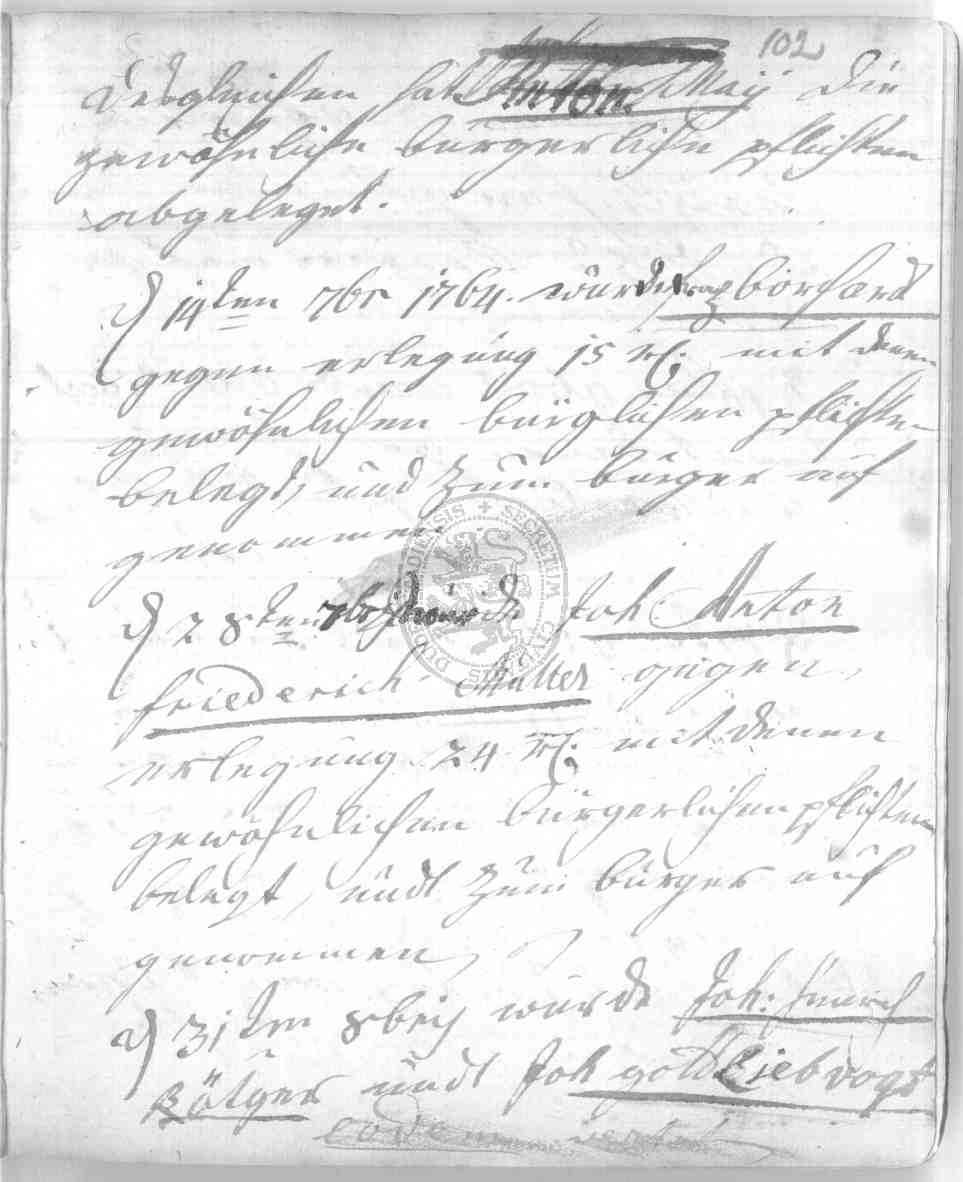 102
Desgleichen hat Anton Maÿ die
gewöhnliche bürgerliche pflichten
abgeleget.
d 14ten 7br 1764. wurde borchard
gegen erlegung 15 rl. mit denen
gewöhnlichen bürglichen pflichten
belegt, und zum bürger auf
genommen
d 28ten 7br wurde Joh: Anton
friederich Müller gegen
erlegung 24 rl. mit denen
gewöhnlichen bürgerlichen pflichten
belegt, undt zum bürger auf
genommen,
d 31ten 8bris wurde Joh: Henrich
Bötger undt Joh gottlieb vogt
SECRETUM CIVIUM